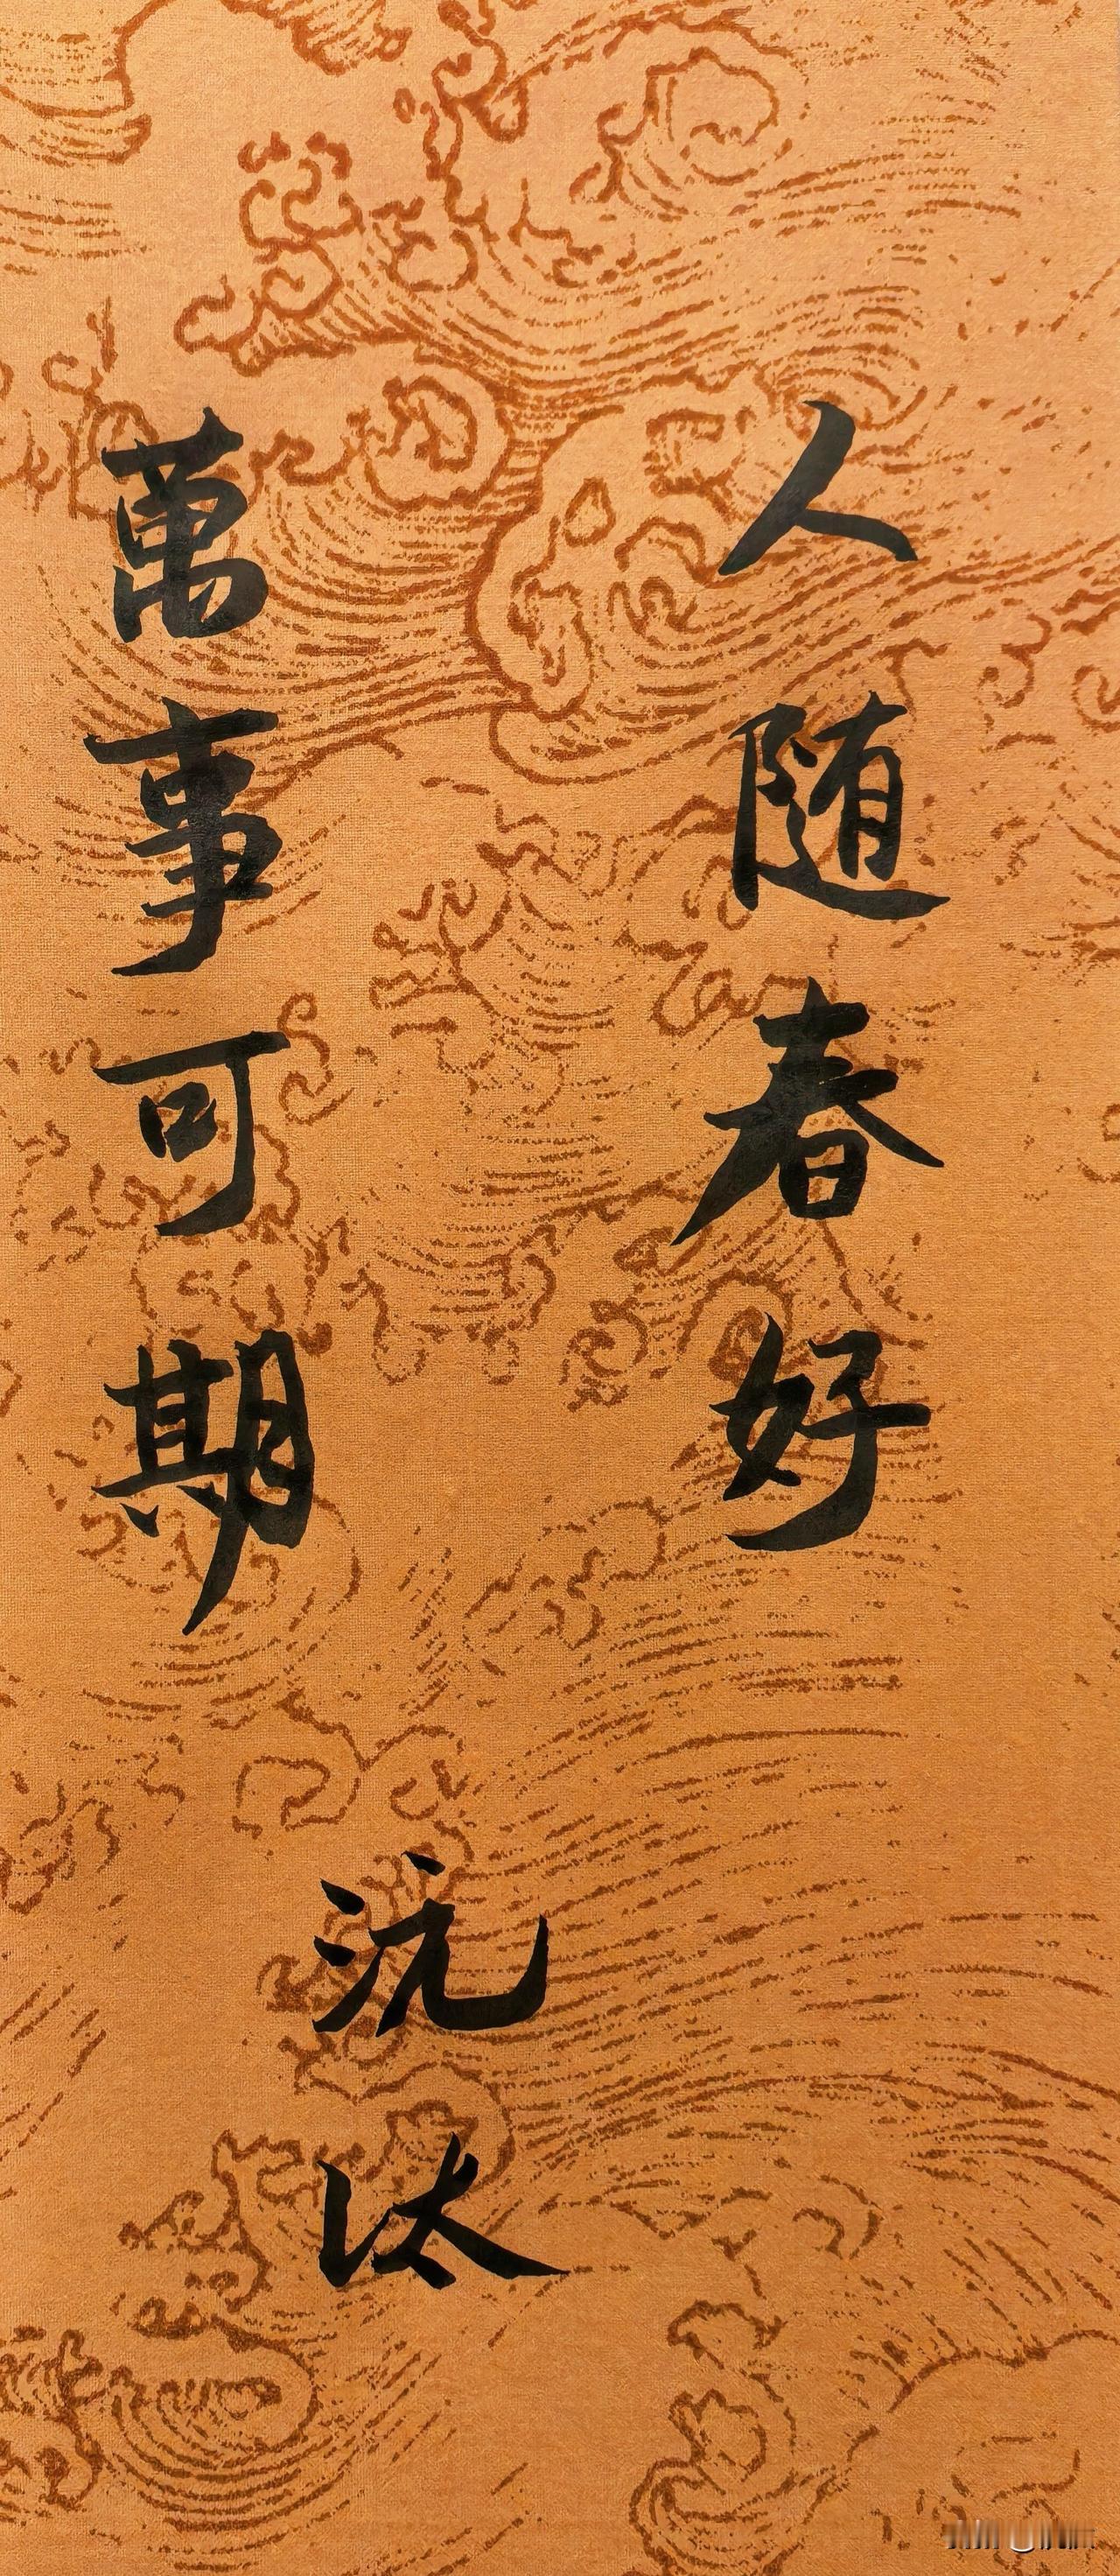 人随春好
萬事可期
沅汰